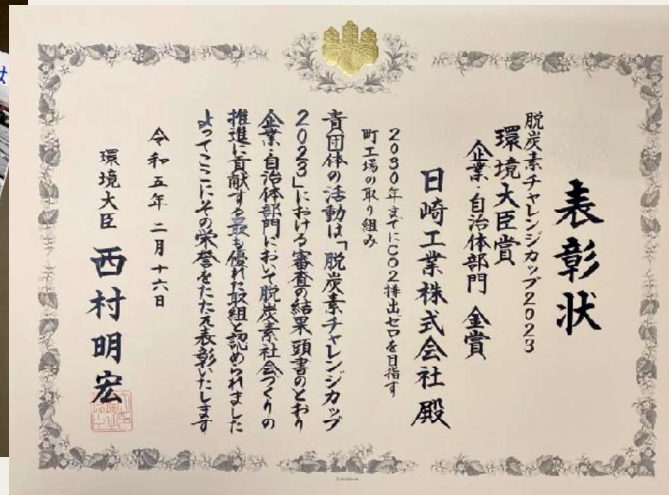 表彰状
脱炭素チャレンジカップ2023
環境大臣賞
企業・自治体部門 金賞
日崎工業株式会社 殿
2030年までにCO2排出ゼロを目指す
町工場の取り組み
貴団体の活動は「脱炭素チャレンジカップ
2023」における審査の結果 頭書のとおり
企業・自治体部門において脱炭素社会づくりの
推進に貢献する最も優れた取組と認められました
よってここにその栄誉をたたえ表彰いたします
令和五年二月十六日
環境大臣 西村明宏